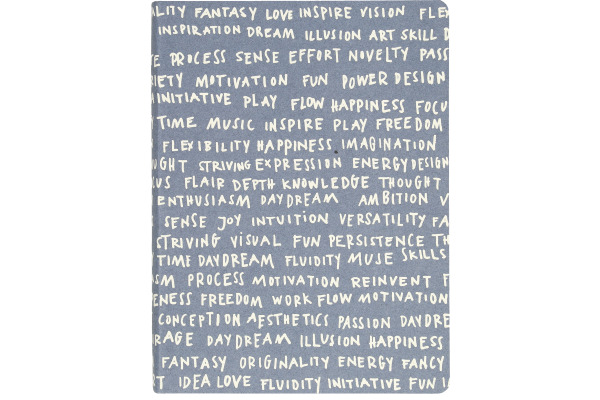 ALITY FANTASY LOVE INSPIRE VISION FLEX
INSPIRATION DREAM ILLUSION ART SKILL D
E PROCESS SENSE EFFORT NOVELTY PASS
RIETY MOTIVATION FUN POWER DESIGN
INITIATIVE PLAY FLOW HAPPINESS FOCU
TIME MUSIC INSPIRE PLAY FREEDOM
FLEXIBILITY HAPPINESS IMAGINATION
UGHT STRIVING EXPRESSION ENERGY DESIGN
CUS FLAIR DEPTH KNOWLEDGE THOUGHT
ENTHUSIASM DAYDREAM AMBITION V
SENSE JOY INTUITION VERSATILITY FA
STRIVING VISUAL FUN PERSISTENCE TH
TIME DAYDREAM FLUIDITY MUSE SKILLS
SM PROCESS MOTIVATION REINVENT F
ENESS FREEDOM WORK FLOW MOTIVATION
CONCEPTION AESTHETICS PASSION DAYDRE
RAGE DAYDREAM ILLUSION HAPPINESS
FANTASY ORIGINALITY ENERGY FANCY
T IDEA LOVE FLUIDITY INITIATIVE FUN I